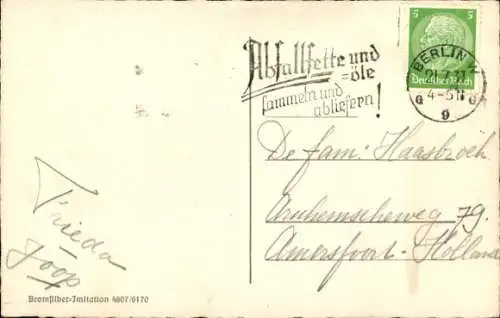 Abfallfette und
=öle
sammeln und
abliefern!
5 5
Deutsches Reich
BERLIN
4-5N
g
De fam: Haasbroek
Arnhemscheweg 79.
Amersfoort - Holland
Frieda
Joop
Bromsilber-Imitation 4607/6170